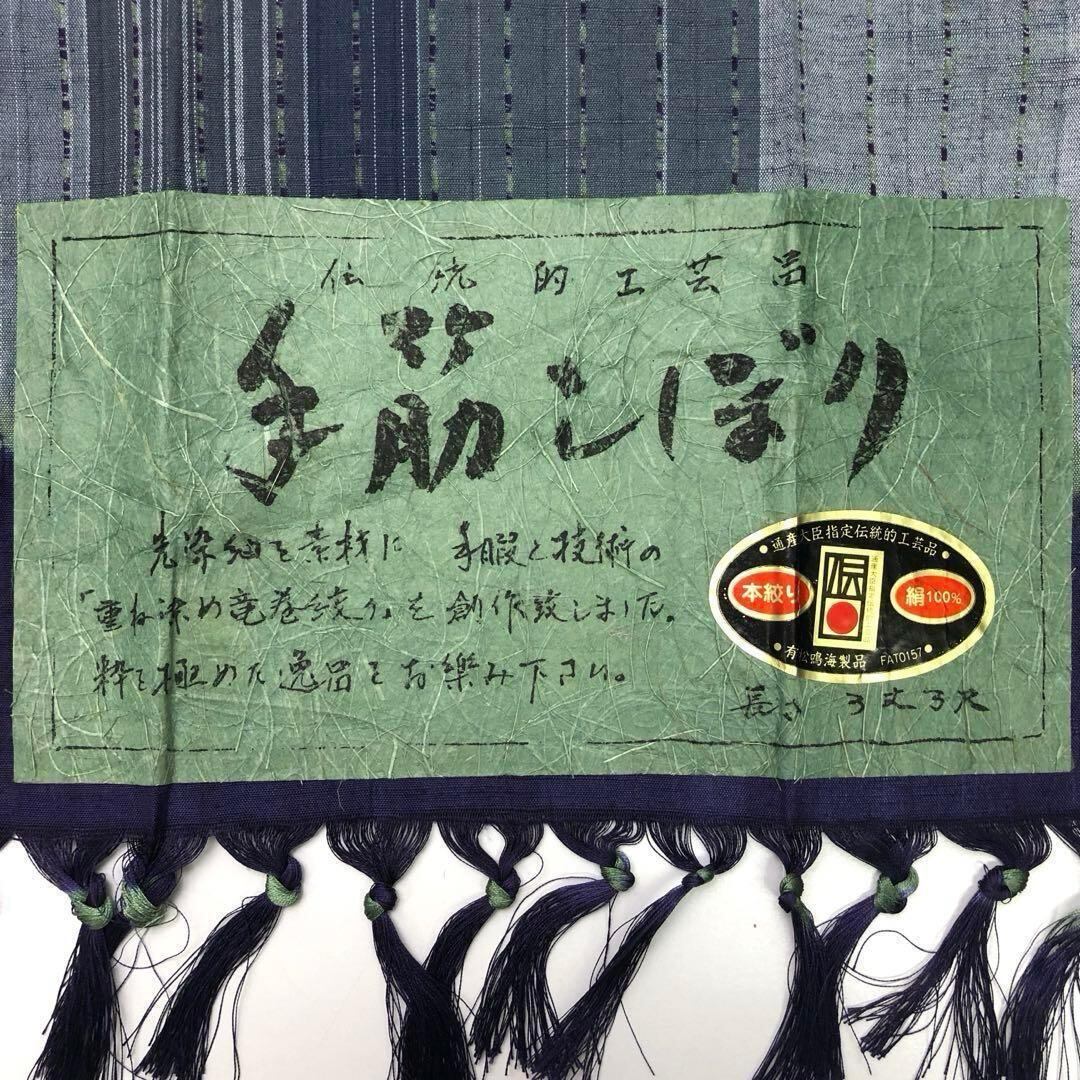 伝統的工芸品
手筋しぼり
先染紬を素材に 手暇と技術の
「重ね染め竜巻絞り」を創作致しました。
粋を極めた逸品をお楽み下さい。
・通産大臣指定伝統的工芸品・
本絞り
伝
絹100%
・有松鳴海製品 FAT0157・
長さ 3丈3尺